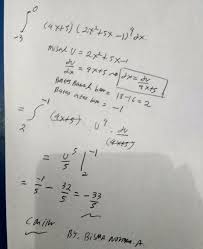 ∫₋₃⁰ (4x+5) (2x²+5x-1)⁴ dx
misal U = 2x²+5x-1
du/dx = 4x+5 → dx = du/4x+5
Batas bawah bar = 18-16 = 2
Batas atas bar = -1
∫₂⁻¹ (4x+5) U⁴ . du/(4x+5)
= U⁵/5 |₂⁻¹
= -1/5 - 32/5 = -33/5
BY. BISMA A.